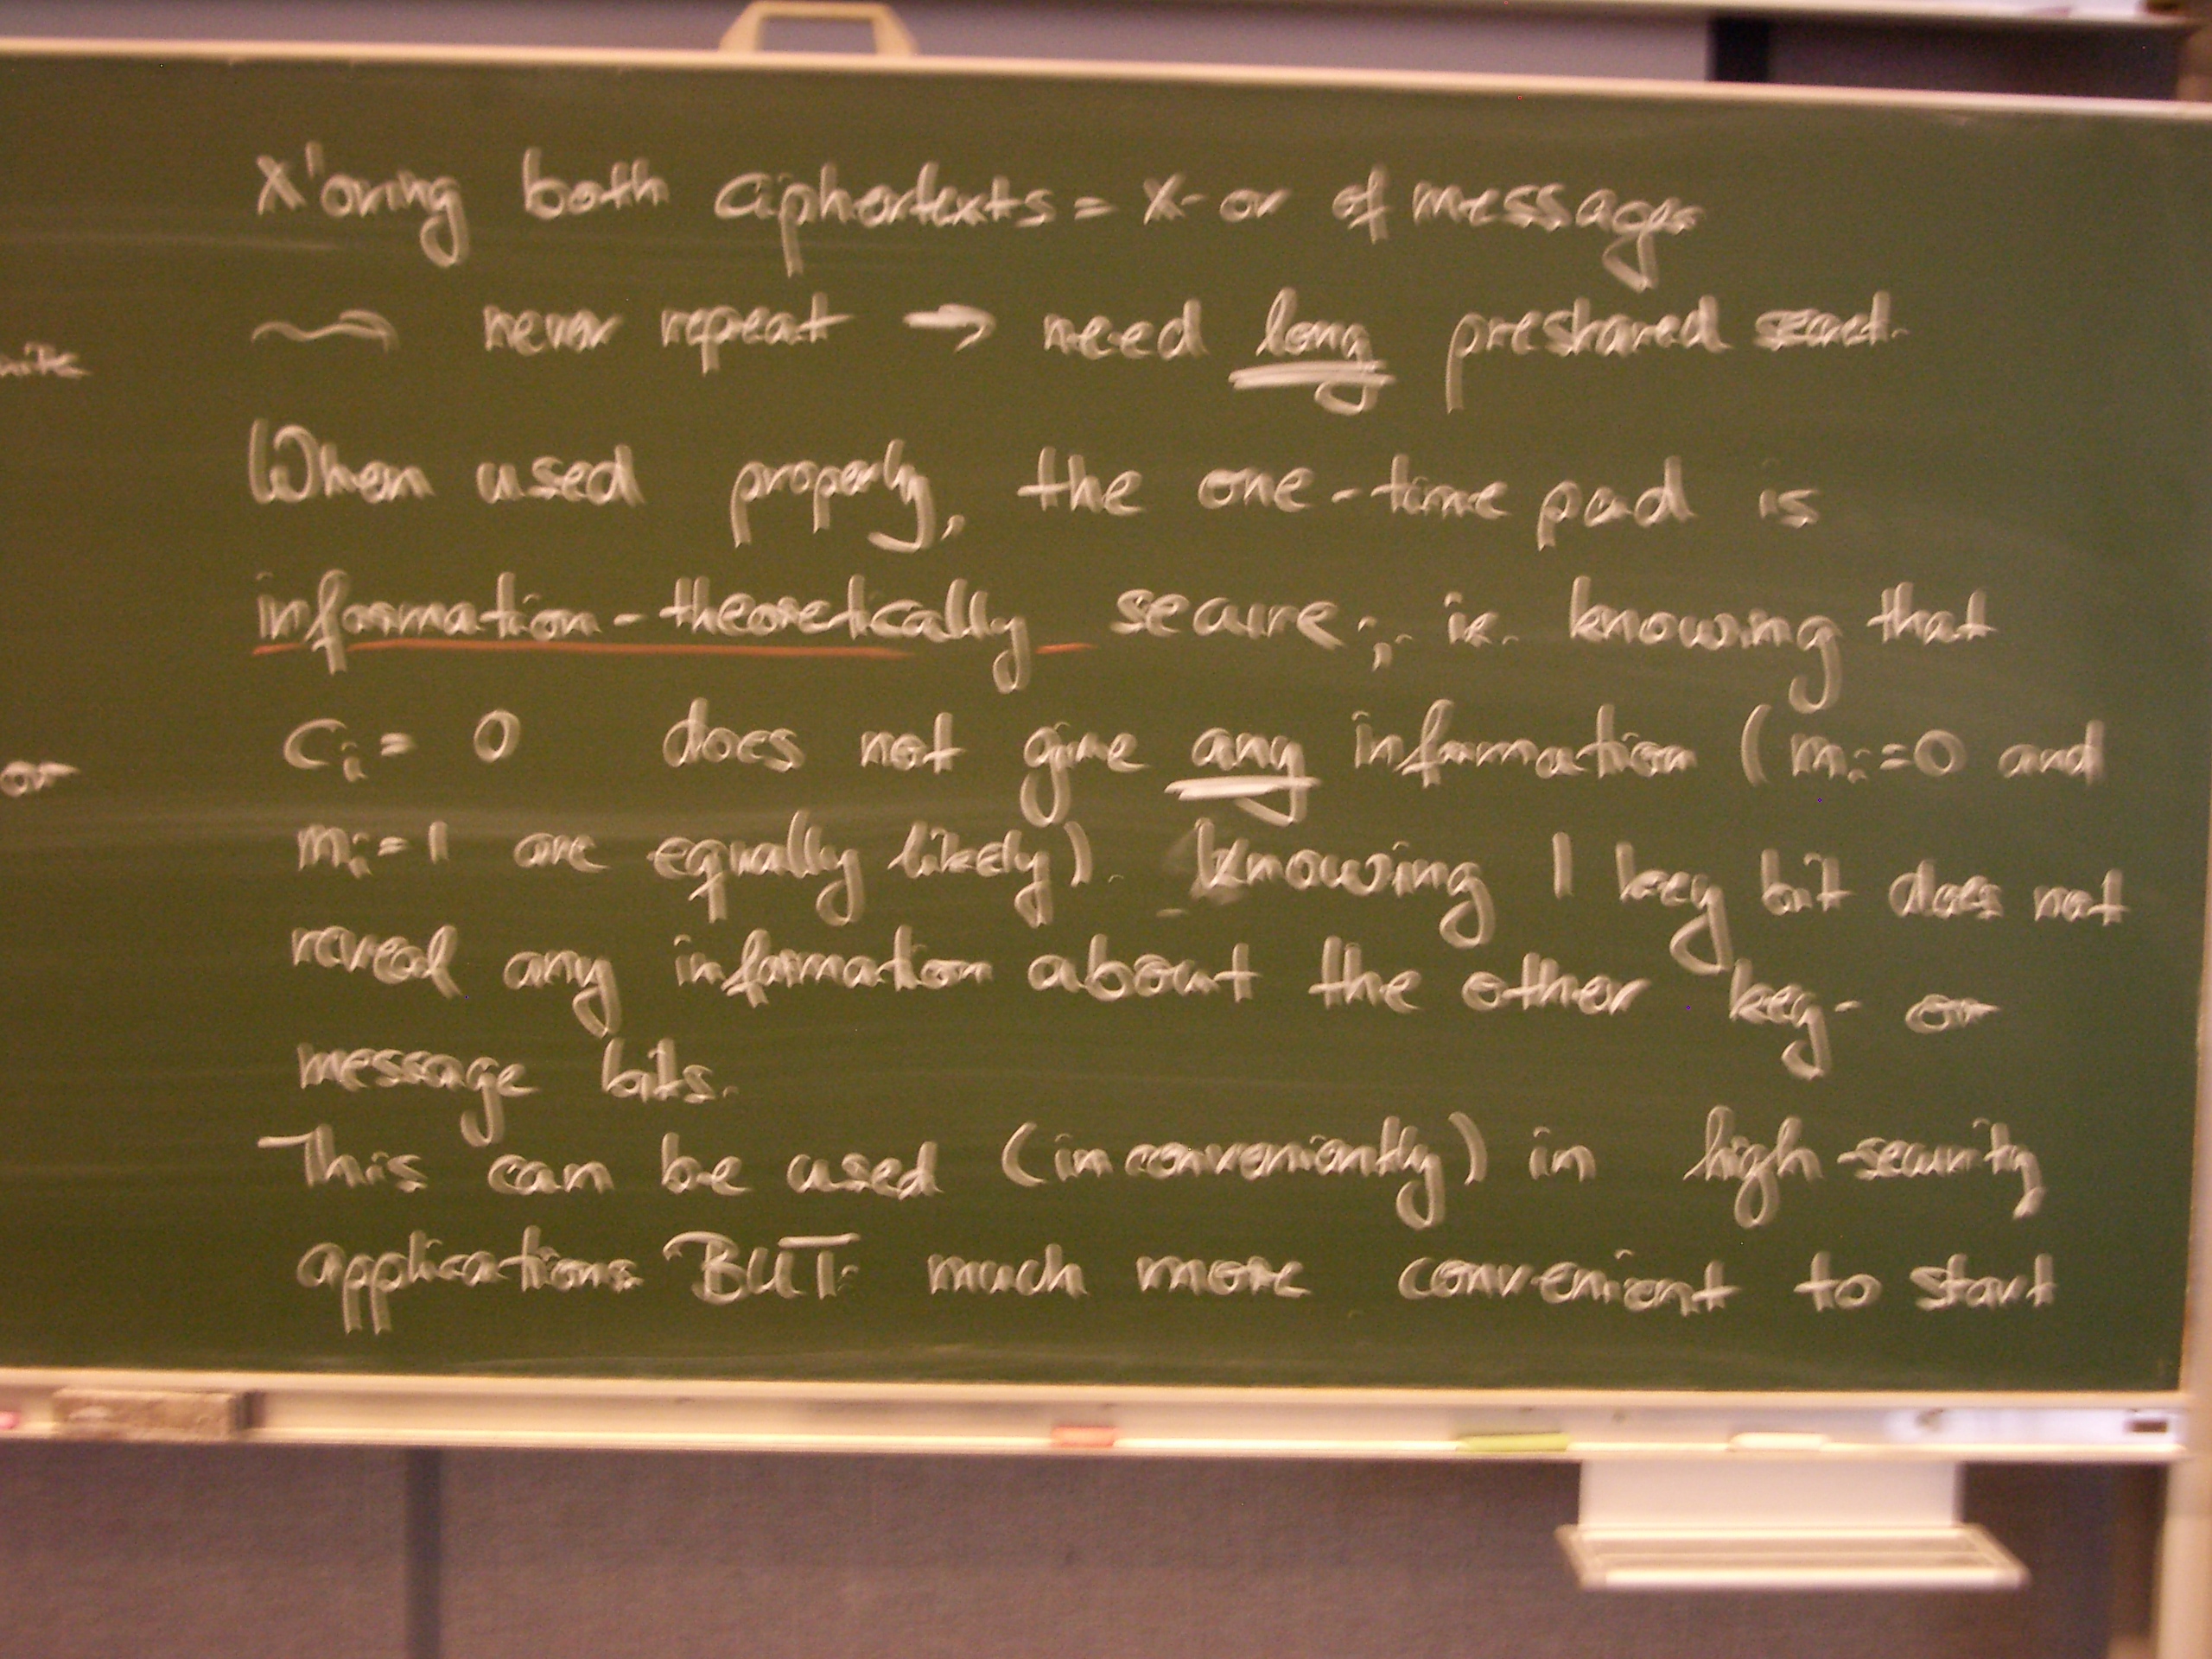 X'oring both ciphertexts = X-or of messages
⇝ never repeat → need long preshared secret.
When used properly, the one-time pad is
information-theoretically secure; i.e. knowing that
cᵢ = 0 does not give any information (mᵢ=0 and
mᵢ=1 are equally likely). Knowing 1 key bit does not
reveal any information about the other key- or
message bits.
This can be used (inconveniently) in high-security
applications BUT: much more convenient to start
or